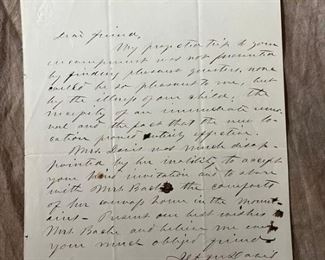 Dear friend,
My projected trip to your
encampment was not prevented
by finding pleasant quarters, none
could be so pleasant to me, but
by the illness of our child. The
necessity of an immediate remo-
val and the fact that the new lo-
cation proved entirely effective.
Mrs. Davis was much disap-
pointed by her inability to accept
your kind invitation and to share
with Mrs. Bache the comforts
of her canvas home in the mount-
ains - Present our best wishes to
Mrs. Bache and believe me ever
your much obliged friend
Jeffn Davis